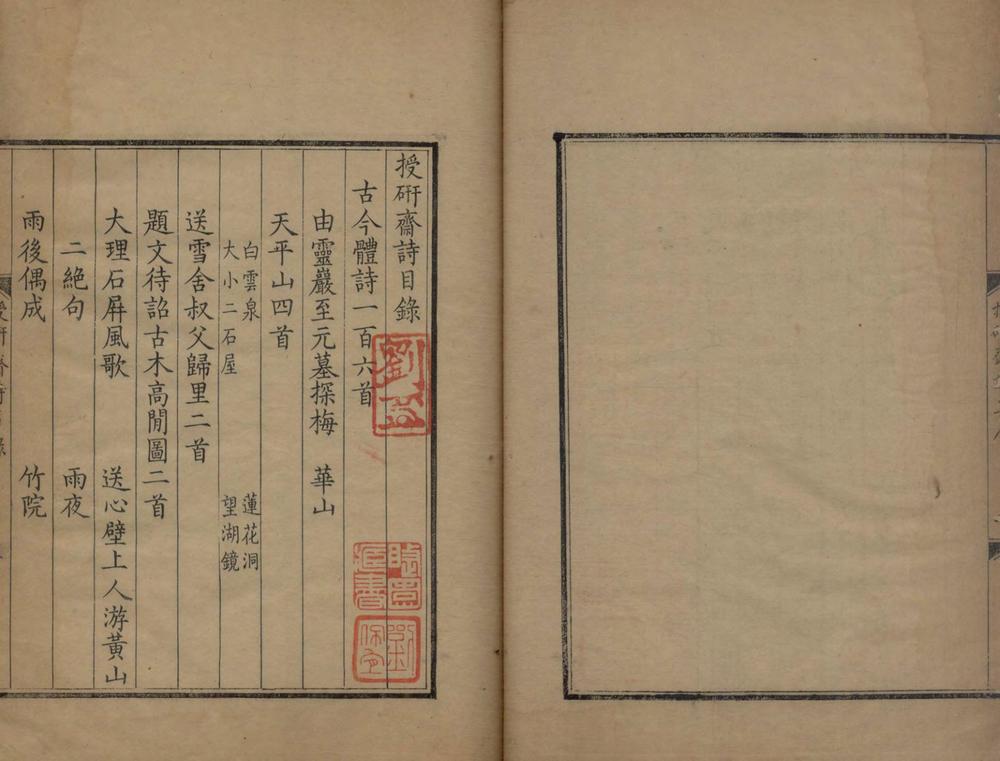 授硏齋詩目錄
古今體詩一百六首
由靈巖至元墓探梅　華山
天平山四首
白雲泉　蓮花洞
大小二石屋　望湖鏡
送雪舍叔父歸里二首
題文待詔古木高閒圖二首
大理石屏風歌　送心壁上人游黃山
二絕句　雨夜
雨後偶成　竹院